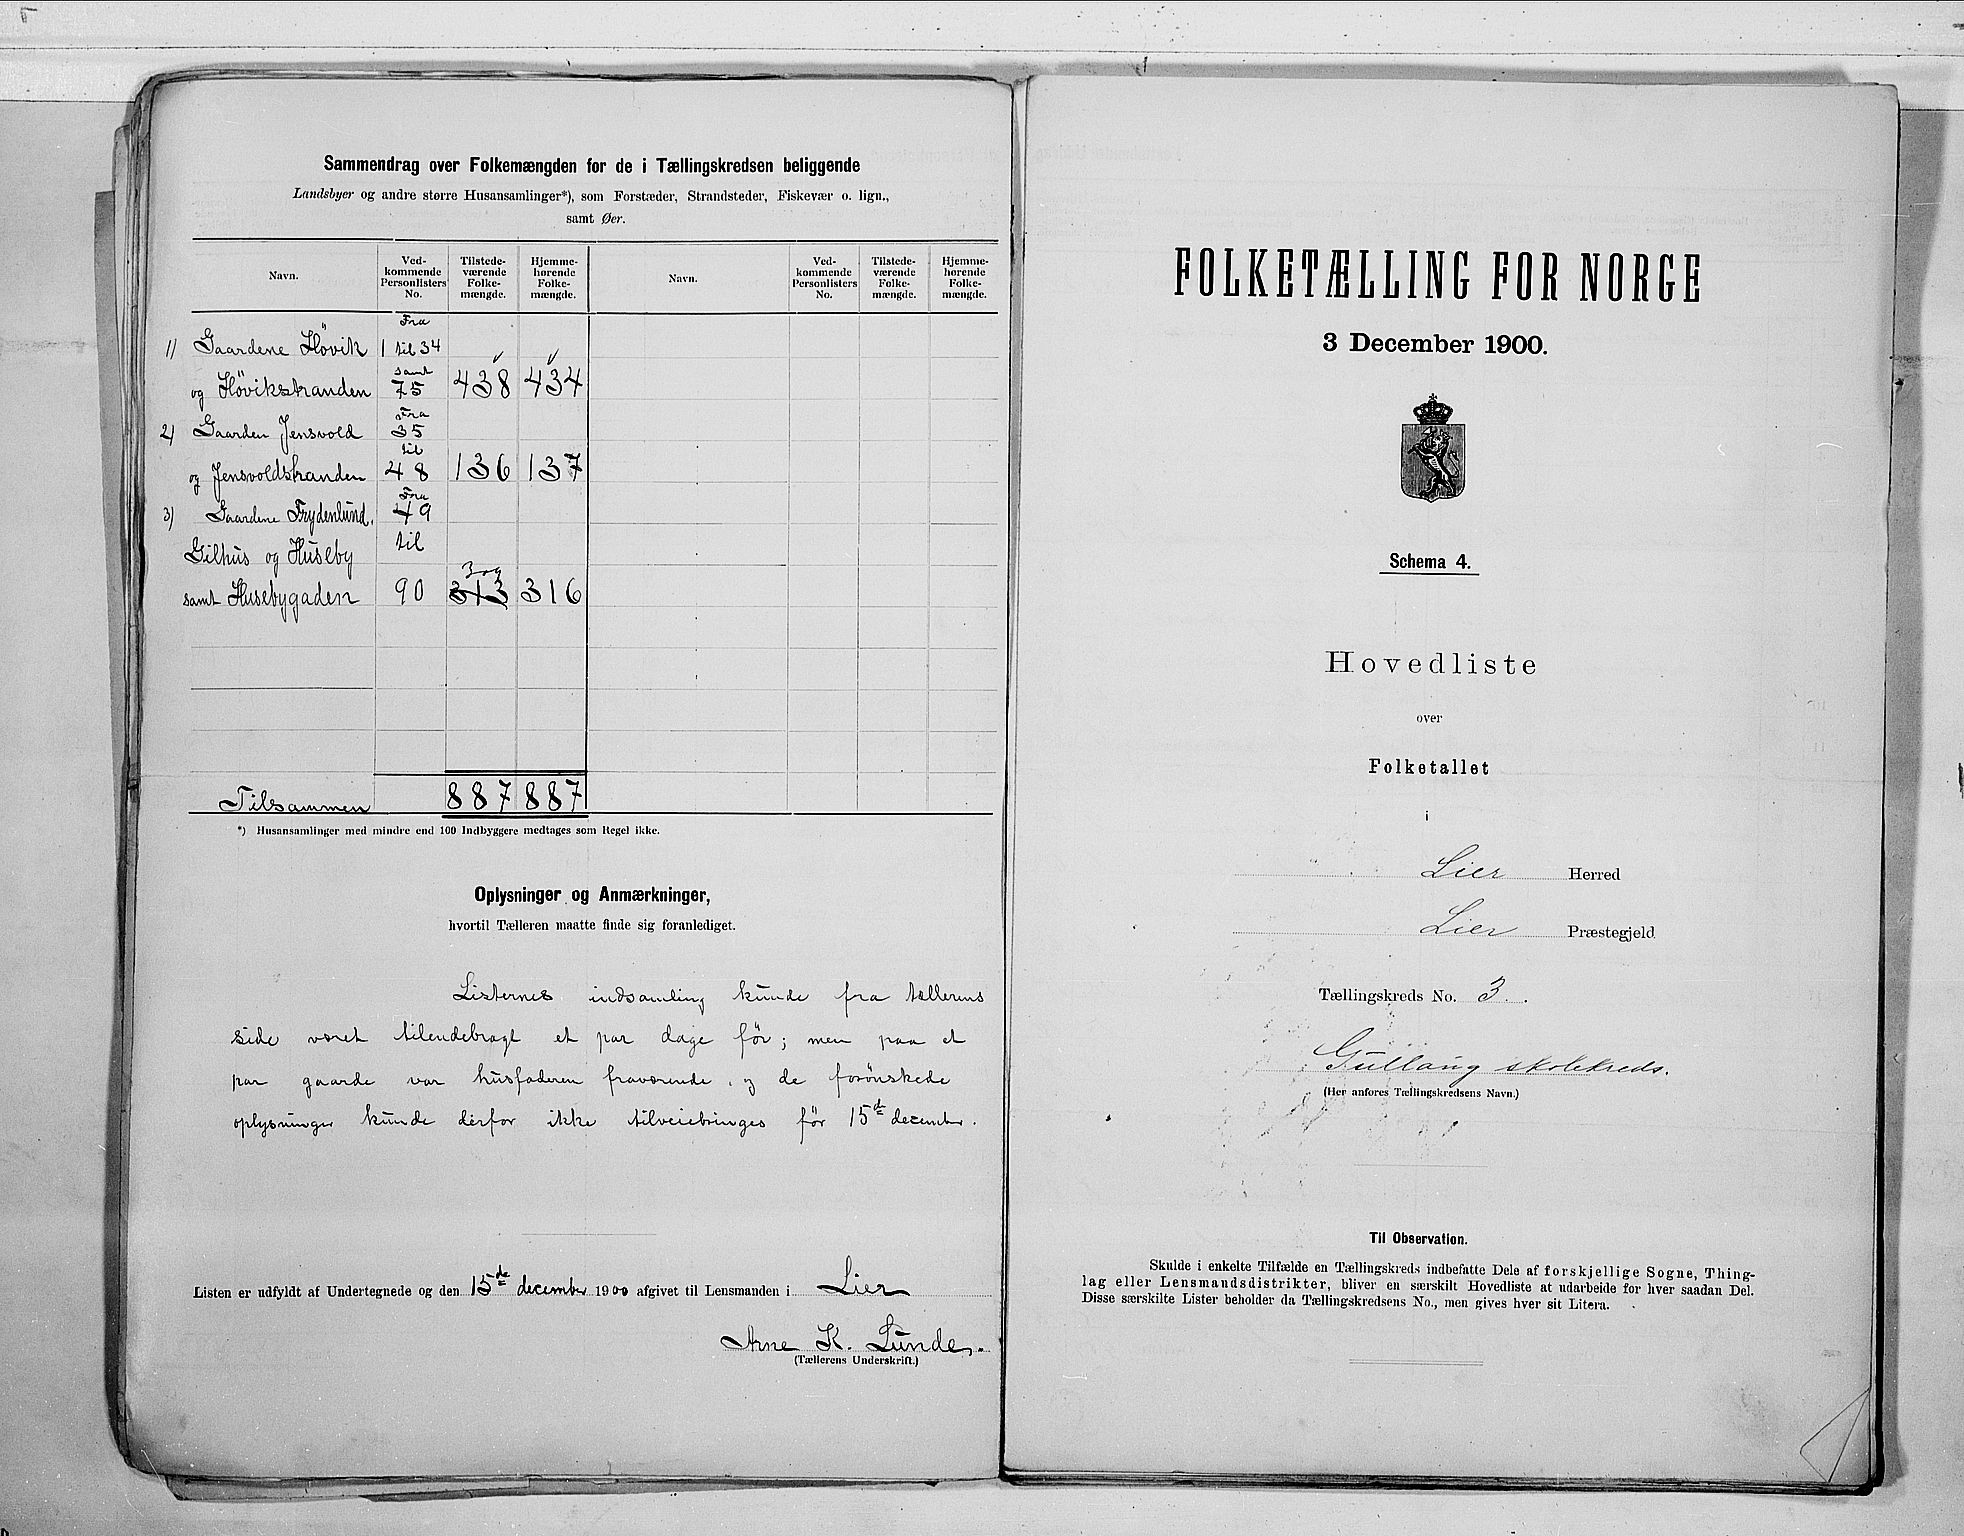 Sammendrag over Folkemængden for de i Tællingskredsen beliggende
Landsbyer og andre større Husansamlinger*), som Forstæder, Strandsteder, Fiskevær o. lign.,
samt Øer.
Navn. Ved-kommende Personlisters No. Tilstede-værende Folke-mængde. Hjemme-hørende Folke-mængde. Navn. Ved-kommende Personlisters No. Tilstede-værende Folke-mængde. Hjemme-hørende Folke-mængde.
Fra
1) Gaardene Høvik 1 til 34
samt
og Høvikstranden 75 438 434
Fra
2) Gaarden Jensvold 35
til
og Jensvoldstranden 48 136 137
Fra
3) Gaardene Frydenlund, 49
Gilhus og Huseby til
samt Husebygaden 90 313 316
Tilsammen 887 887
*) Husansamlinger med mindre end 100 Indbyggere medtages som Regel ikke.
Oplysninger og Anmærkninger,
hvortil Tælleren maatte finde sig foranlediget.
Listernes indsamling kunde fra tællerens
side været tilendebragt et par dage før; men paa et
par gaarde var husfaderen fraværende, og de forönskede
oplysninger kunde derfor ikke tilveiebringes før 15de december.
Listen er udfyldt af Undertegnede og den 15de december 1900 afgivet til Lensmanden i Lier
Arne K. Lunde.
(Tællerens Underskrift.)
FOLKETÆLLING FOR NORGE
3 December 1900.
Schema 4.
Hovedliste
over
Folketallet
i
Lier Herred
Lier Præstegjeld
Tællingskreds No. 3.
Gullaug skolekreds.
(Her anføres Tællingskredsens Navn.)
Til Observation.
Skulde i enkelte Tilfælde en Tællingskreds indbefatte Dele af forskjellige Sogne, Thing-
lag eller Lensmandsdistrikter, bliver en særskilt Hovedliste at udarbeide for hver saadan Del.
Disse særskilte Lister beholder da Tællingskredsens No., men gives hver sit Litera.